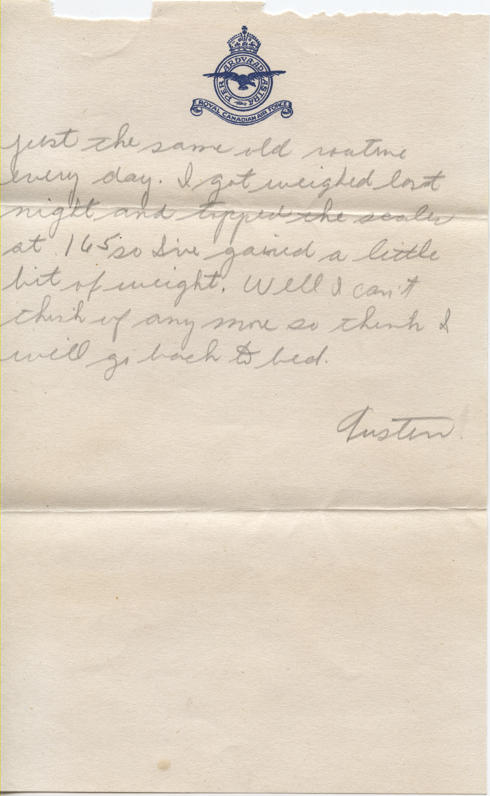 PER ARDVA AD ASTRA
ROYAL CANADIAN AIR FORCE
just the same old routine
every day. I got weighed last
night and topped the scales
at 165 so I've gained a little
bit of weight. Well I can't
think of any more so think I
will go back to bed.
Austen